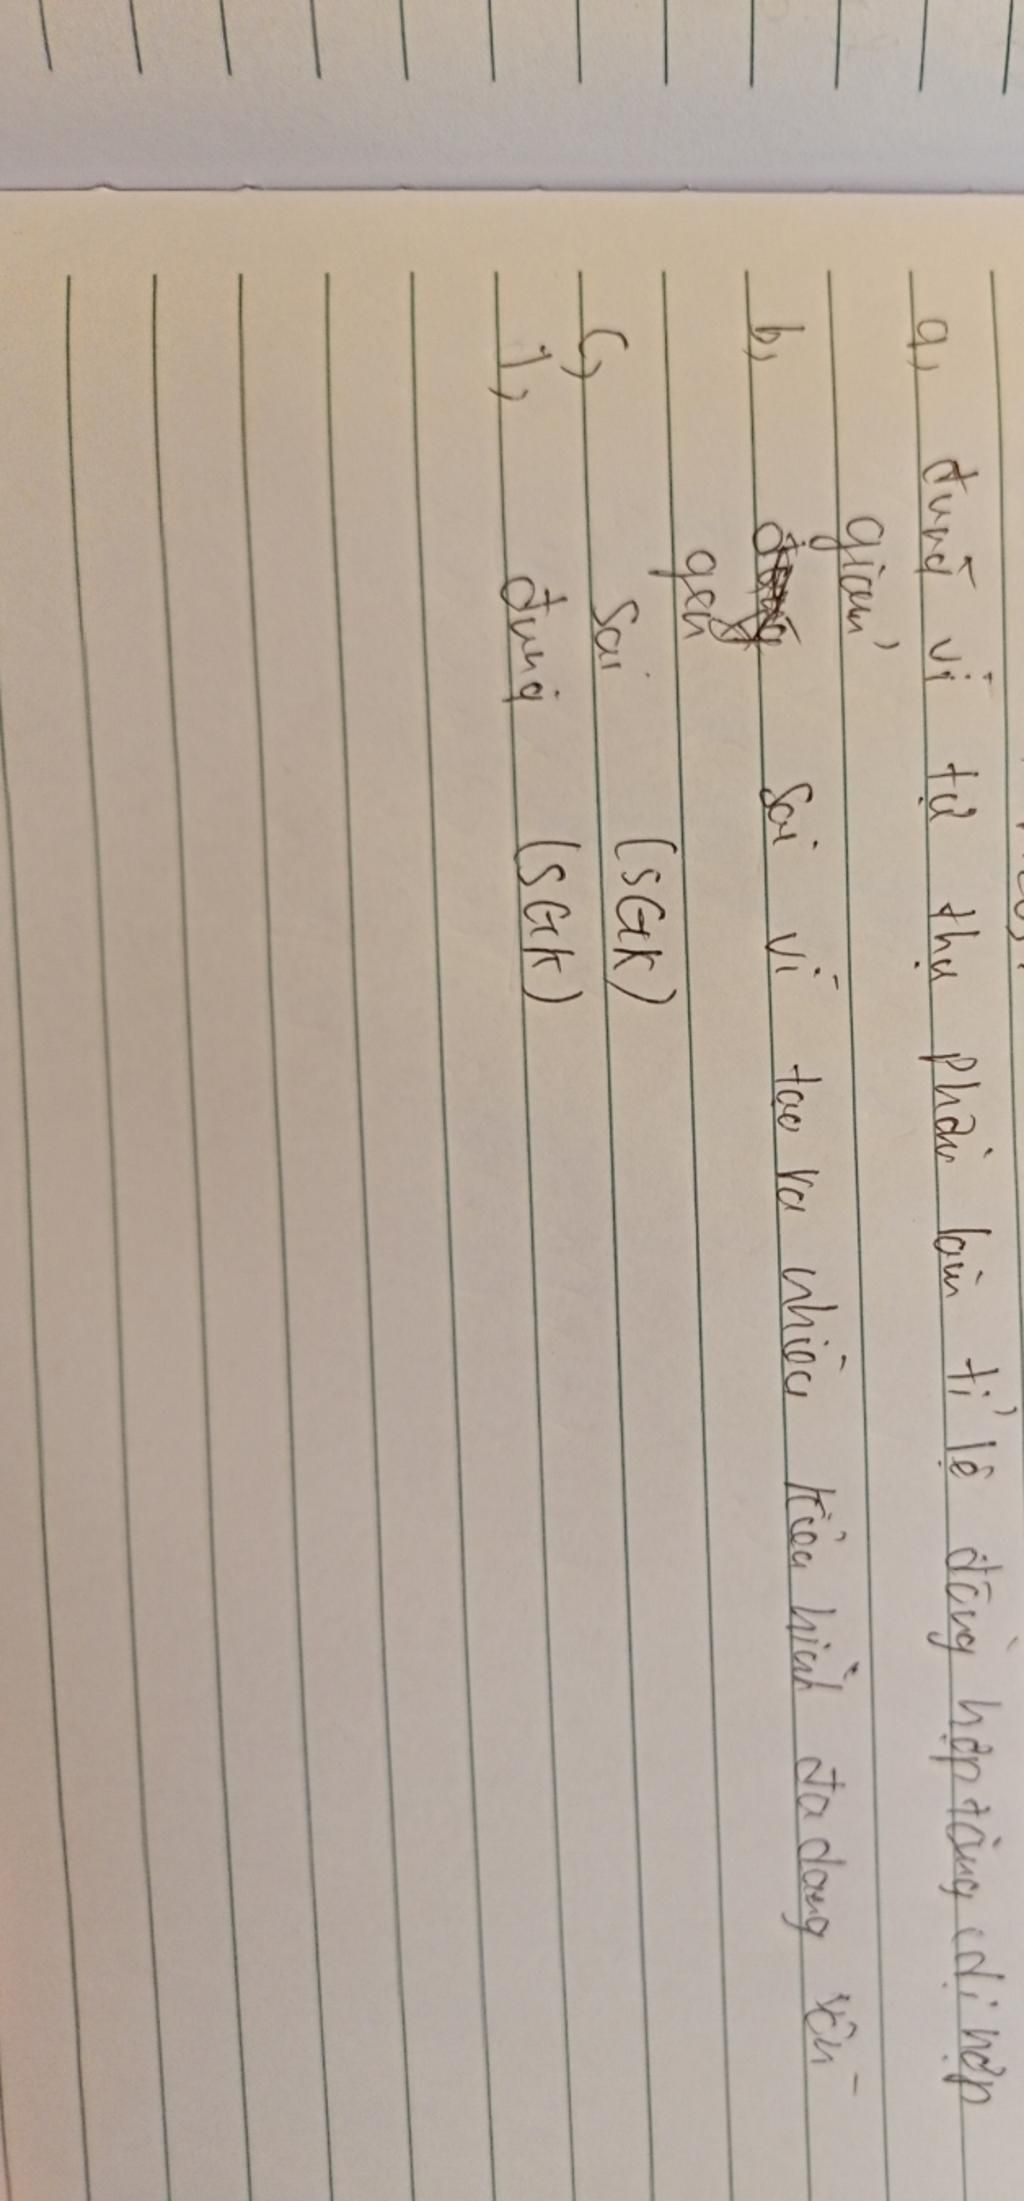 a, đúng vì tự thụ phấn làm tỉ lệ đồng hợp tăng, dị hợp
giảm
b, sai vì tạo ra nhiều kiểu hình đa dạng vốn
gen
c, sai (SGK)
1, đúng (SGK)